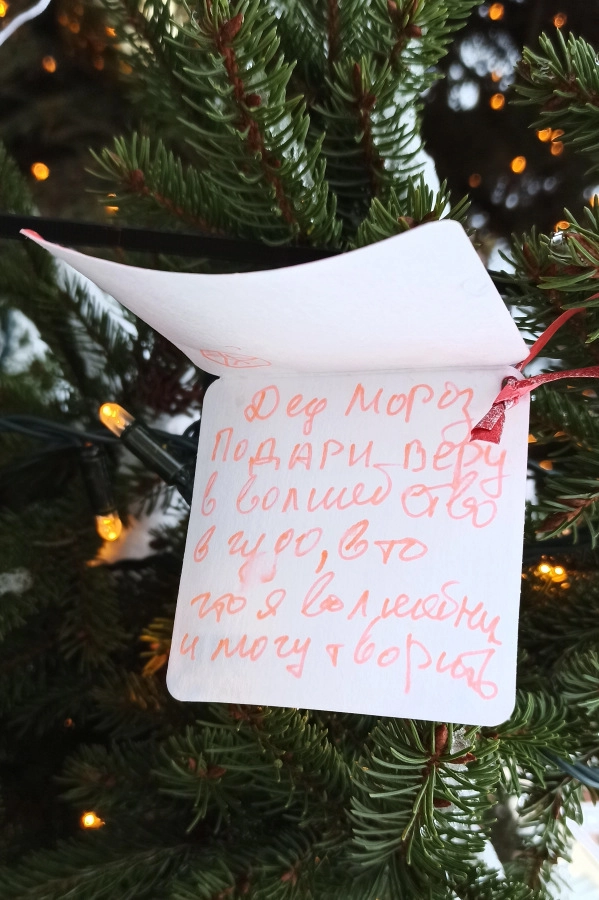 Дед Мороз
ПОДАРИ ВЕРУ
в волшебство
в чудо, в то
что я волшебниц
и могу творить